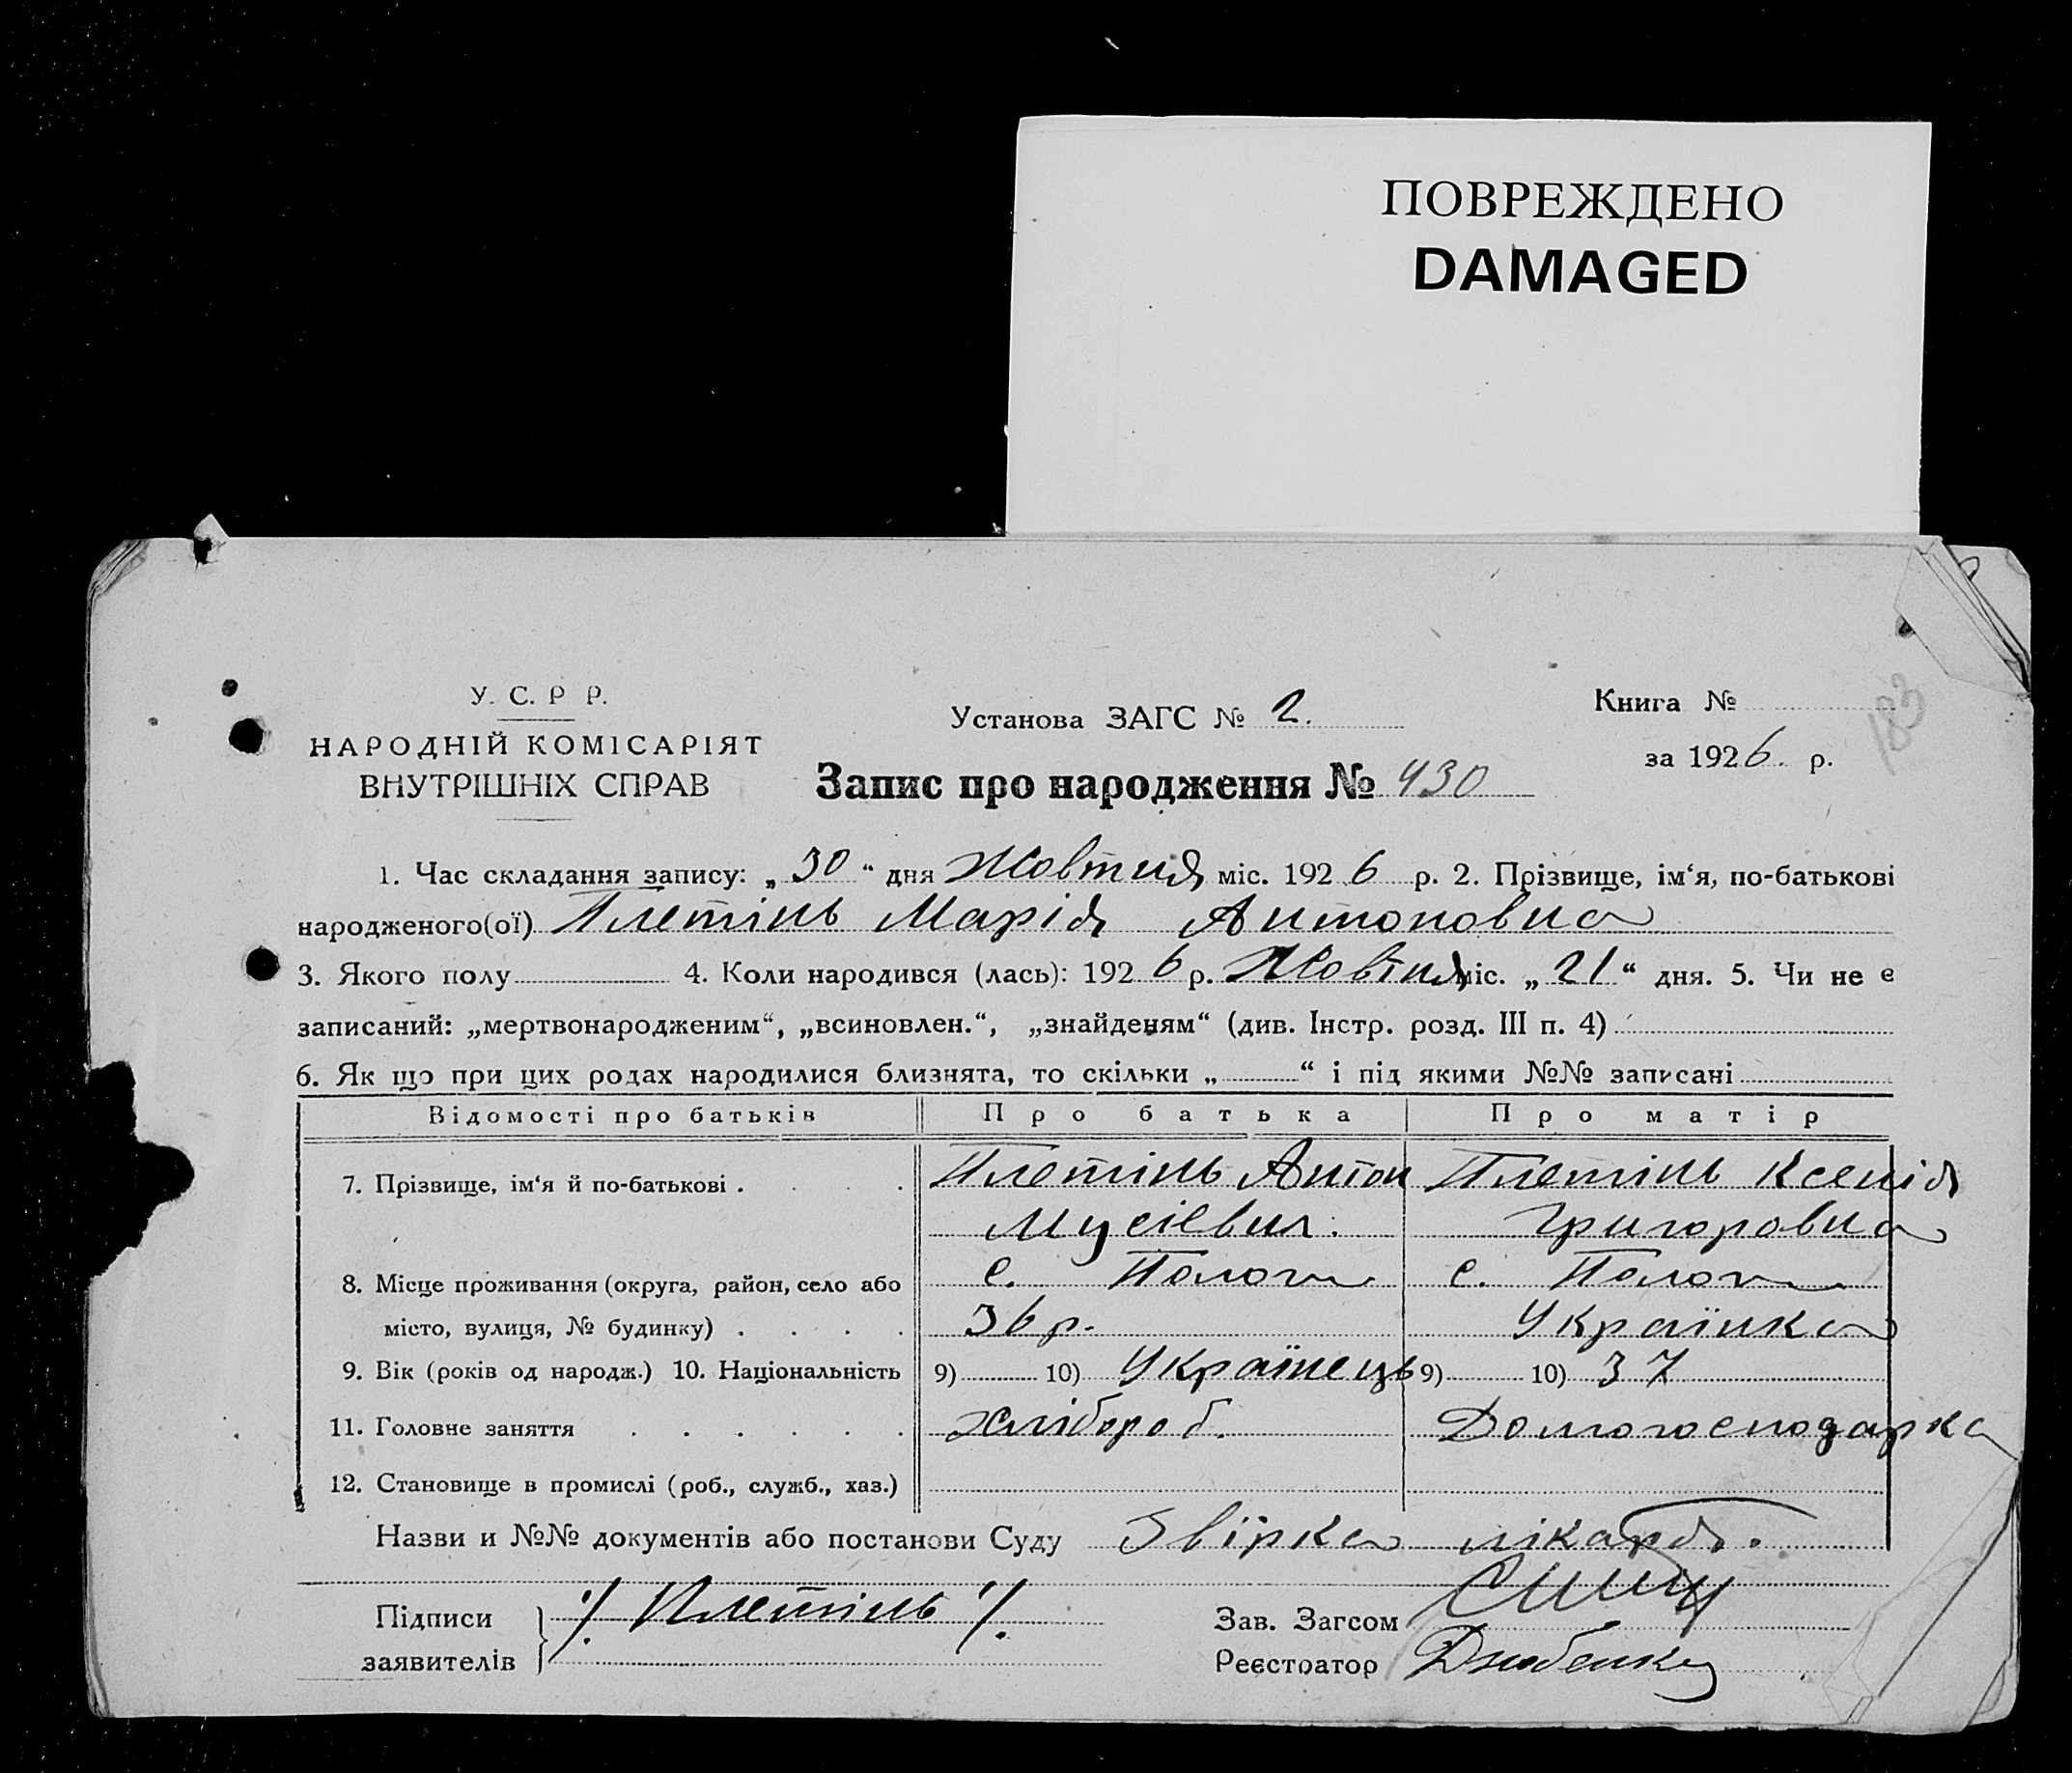 ПОВРЕЖДЕНО
DAMAGED
У. С. Р Р.
НАРОДНІЙ КОМІСАРІЯТ
ВНУТРІШНІХ СПРАВ
Установа ЗАГС № 2.
Запис про народження № 430
Книга №
183
за 1926. р.
1. Час складання запису: „30“ дня Жовтня міс. 1926 р. 2. Прізвище, ім‘я, по-батькові
народженого(ої) Плетінь Марія Антоновна
3. Якого полу 4. Коли народився (лась): 1926 р. Жовтня міс. „21“ дня. 5. Чи не є
записаний: „мертвонародженим“, „всиновлен.“, „знайденям“ (див. Інстр. розд. III п. 4)
6. Як що при цих родах народилися близнята, то скільки „ “ і під якими №№ записані
Відомості про батьків Про батька Про матір
7. Прізвище, ім‘я й по-батькові . . . . Плетінь Антон Плетінь Ксенія
Мусієвич. Григоровна
8. Місце проживання (округа, район, село або с. Пологи с. Пологи
місто, вулиця, № будинку) . . . . 36 р. Українка
9. Вік (років од народж.) 10. Національність 9) 10) Українець 9) 10) 37
11. Головне заняття . . . . . . хлібороб. Домогосподарка
12. Становище в промислі (роб., служб., хаз.)
Назви и №№ документів або постанови Суду Звірка лікаря.
Підписи /. Плетінь /.
заявителів
Зав. Загсом
Реєстратор Дзюбенко